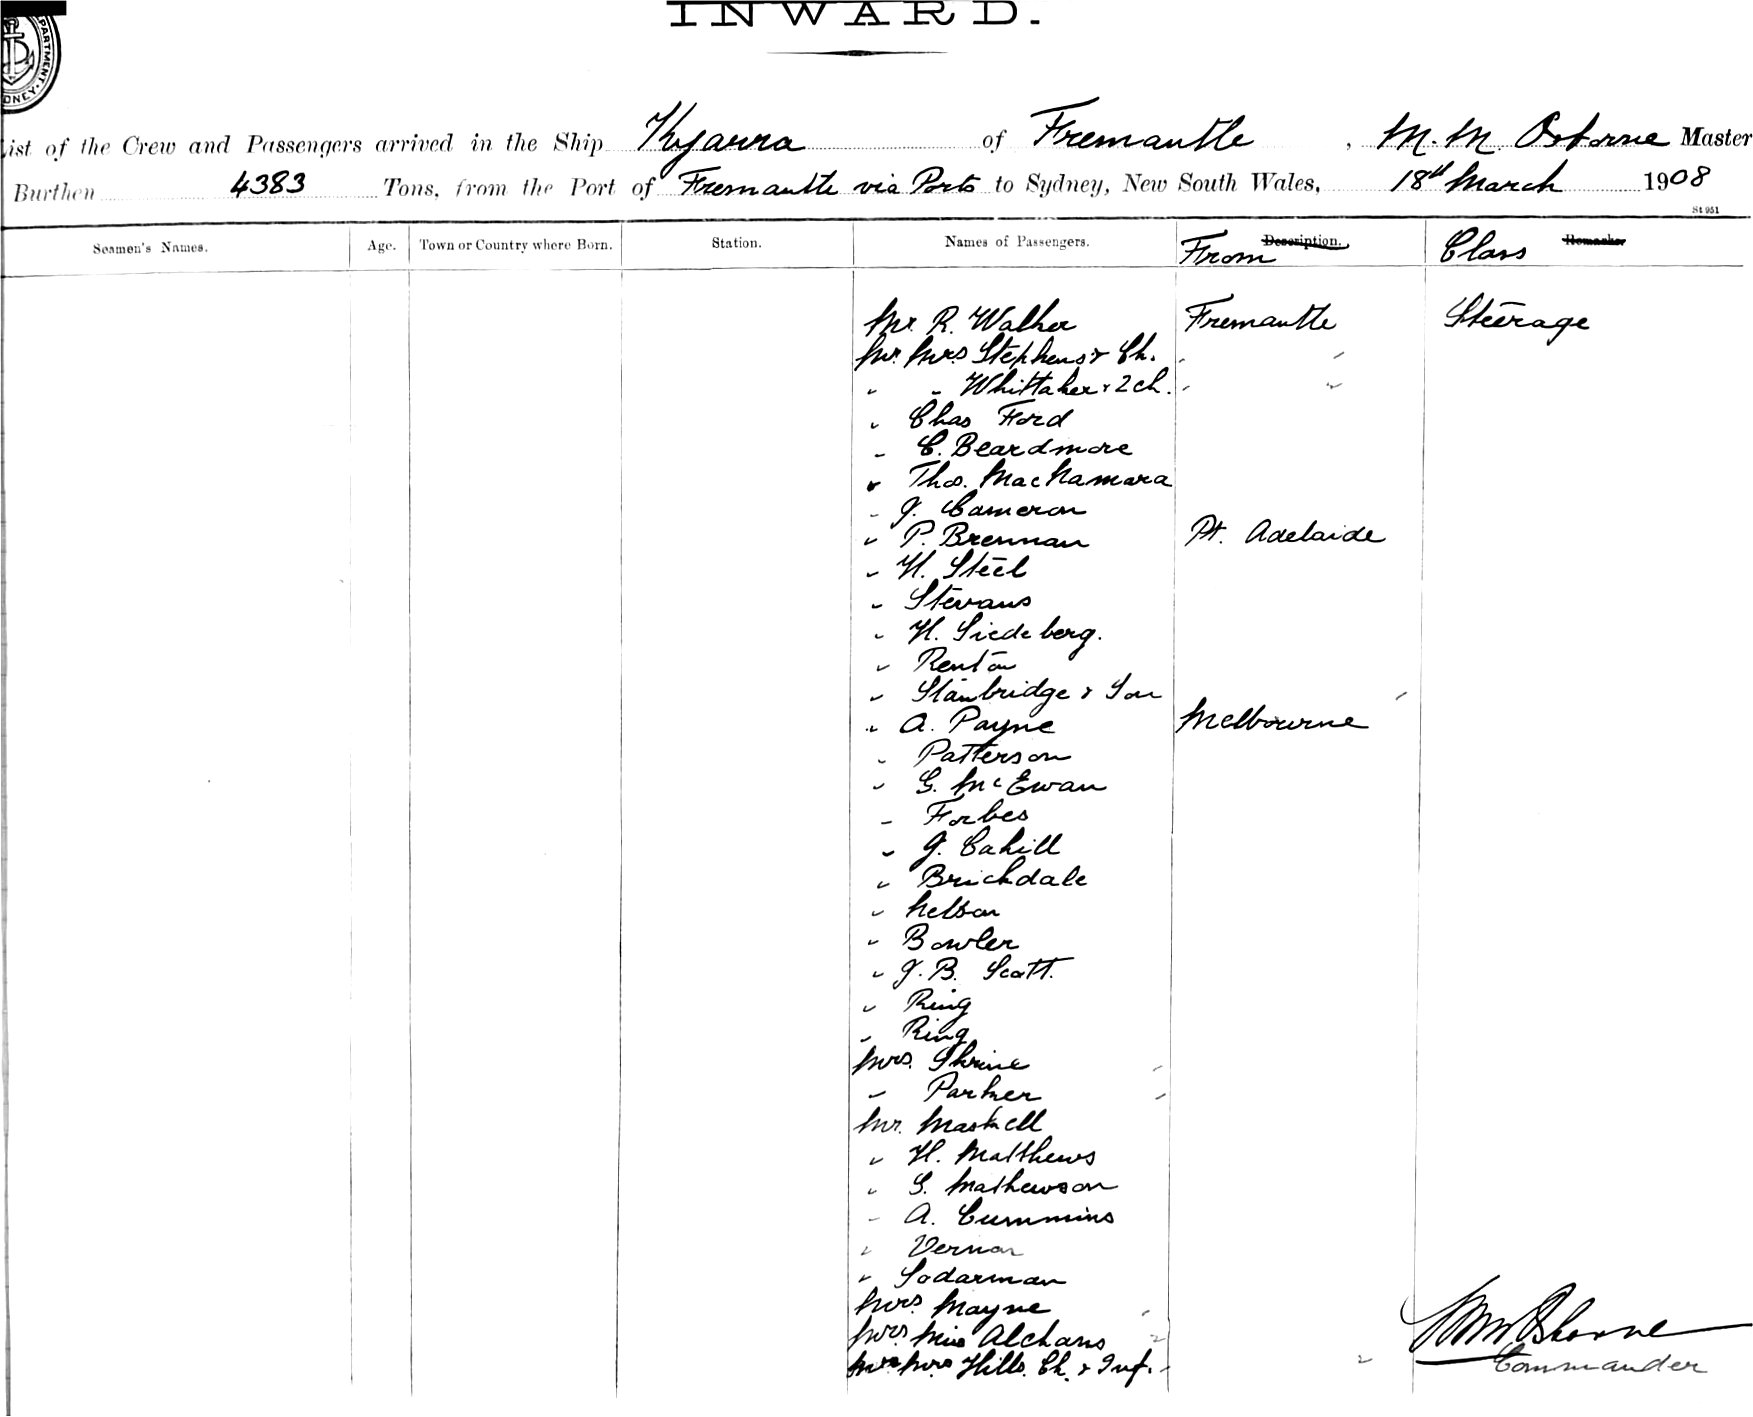 INWARD.
PARTMENT.
DNEY.
List of the Crew and Passengers arrived in the Ship Kyarra of Fremantle, M. M. Osborne Master
Burthen 4383 Tons, from the Port of Fremantle via Ports to Sydney, New South Wales, 18th March 1908
St 951
Seamen's Names. Age. Town or Country where Born. Station. Names of Passengers. Description. From Remarks Class
Mr. R. Walker Fremantle Steerage
Mr. Mrs Stephens & Ch. " "
" " Whittaker & 2 ch. " "
" Chas Ford
" C. Beardmore
" Thos. MacNamara
" J. Cameron
" P. Brennan Pt. Adelaide
" H. Steel
" Stevans
" H. Siedeberg.
" Renton
" Stanbridge & Son
" A. Payne Melbourne
" Patterson
" G. McEwan
" Forbes
" J. Cahill
" Brickdale
" Nelson
" Bowler
" J. B. Scott.
" Ring
" Ring
Mrs. Skrine
" Parker
Mr. Maskell
" H. Matthews
" G. Mathewson
" A. Cummins
" Vernon
" Sodarman
Mrs. Mayne
Mrs. Miss Alchans
Mrs Hills. Ch. & Inf.
M M Osborne
Commander